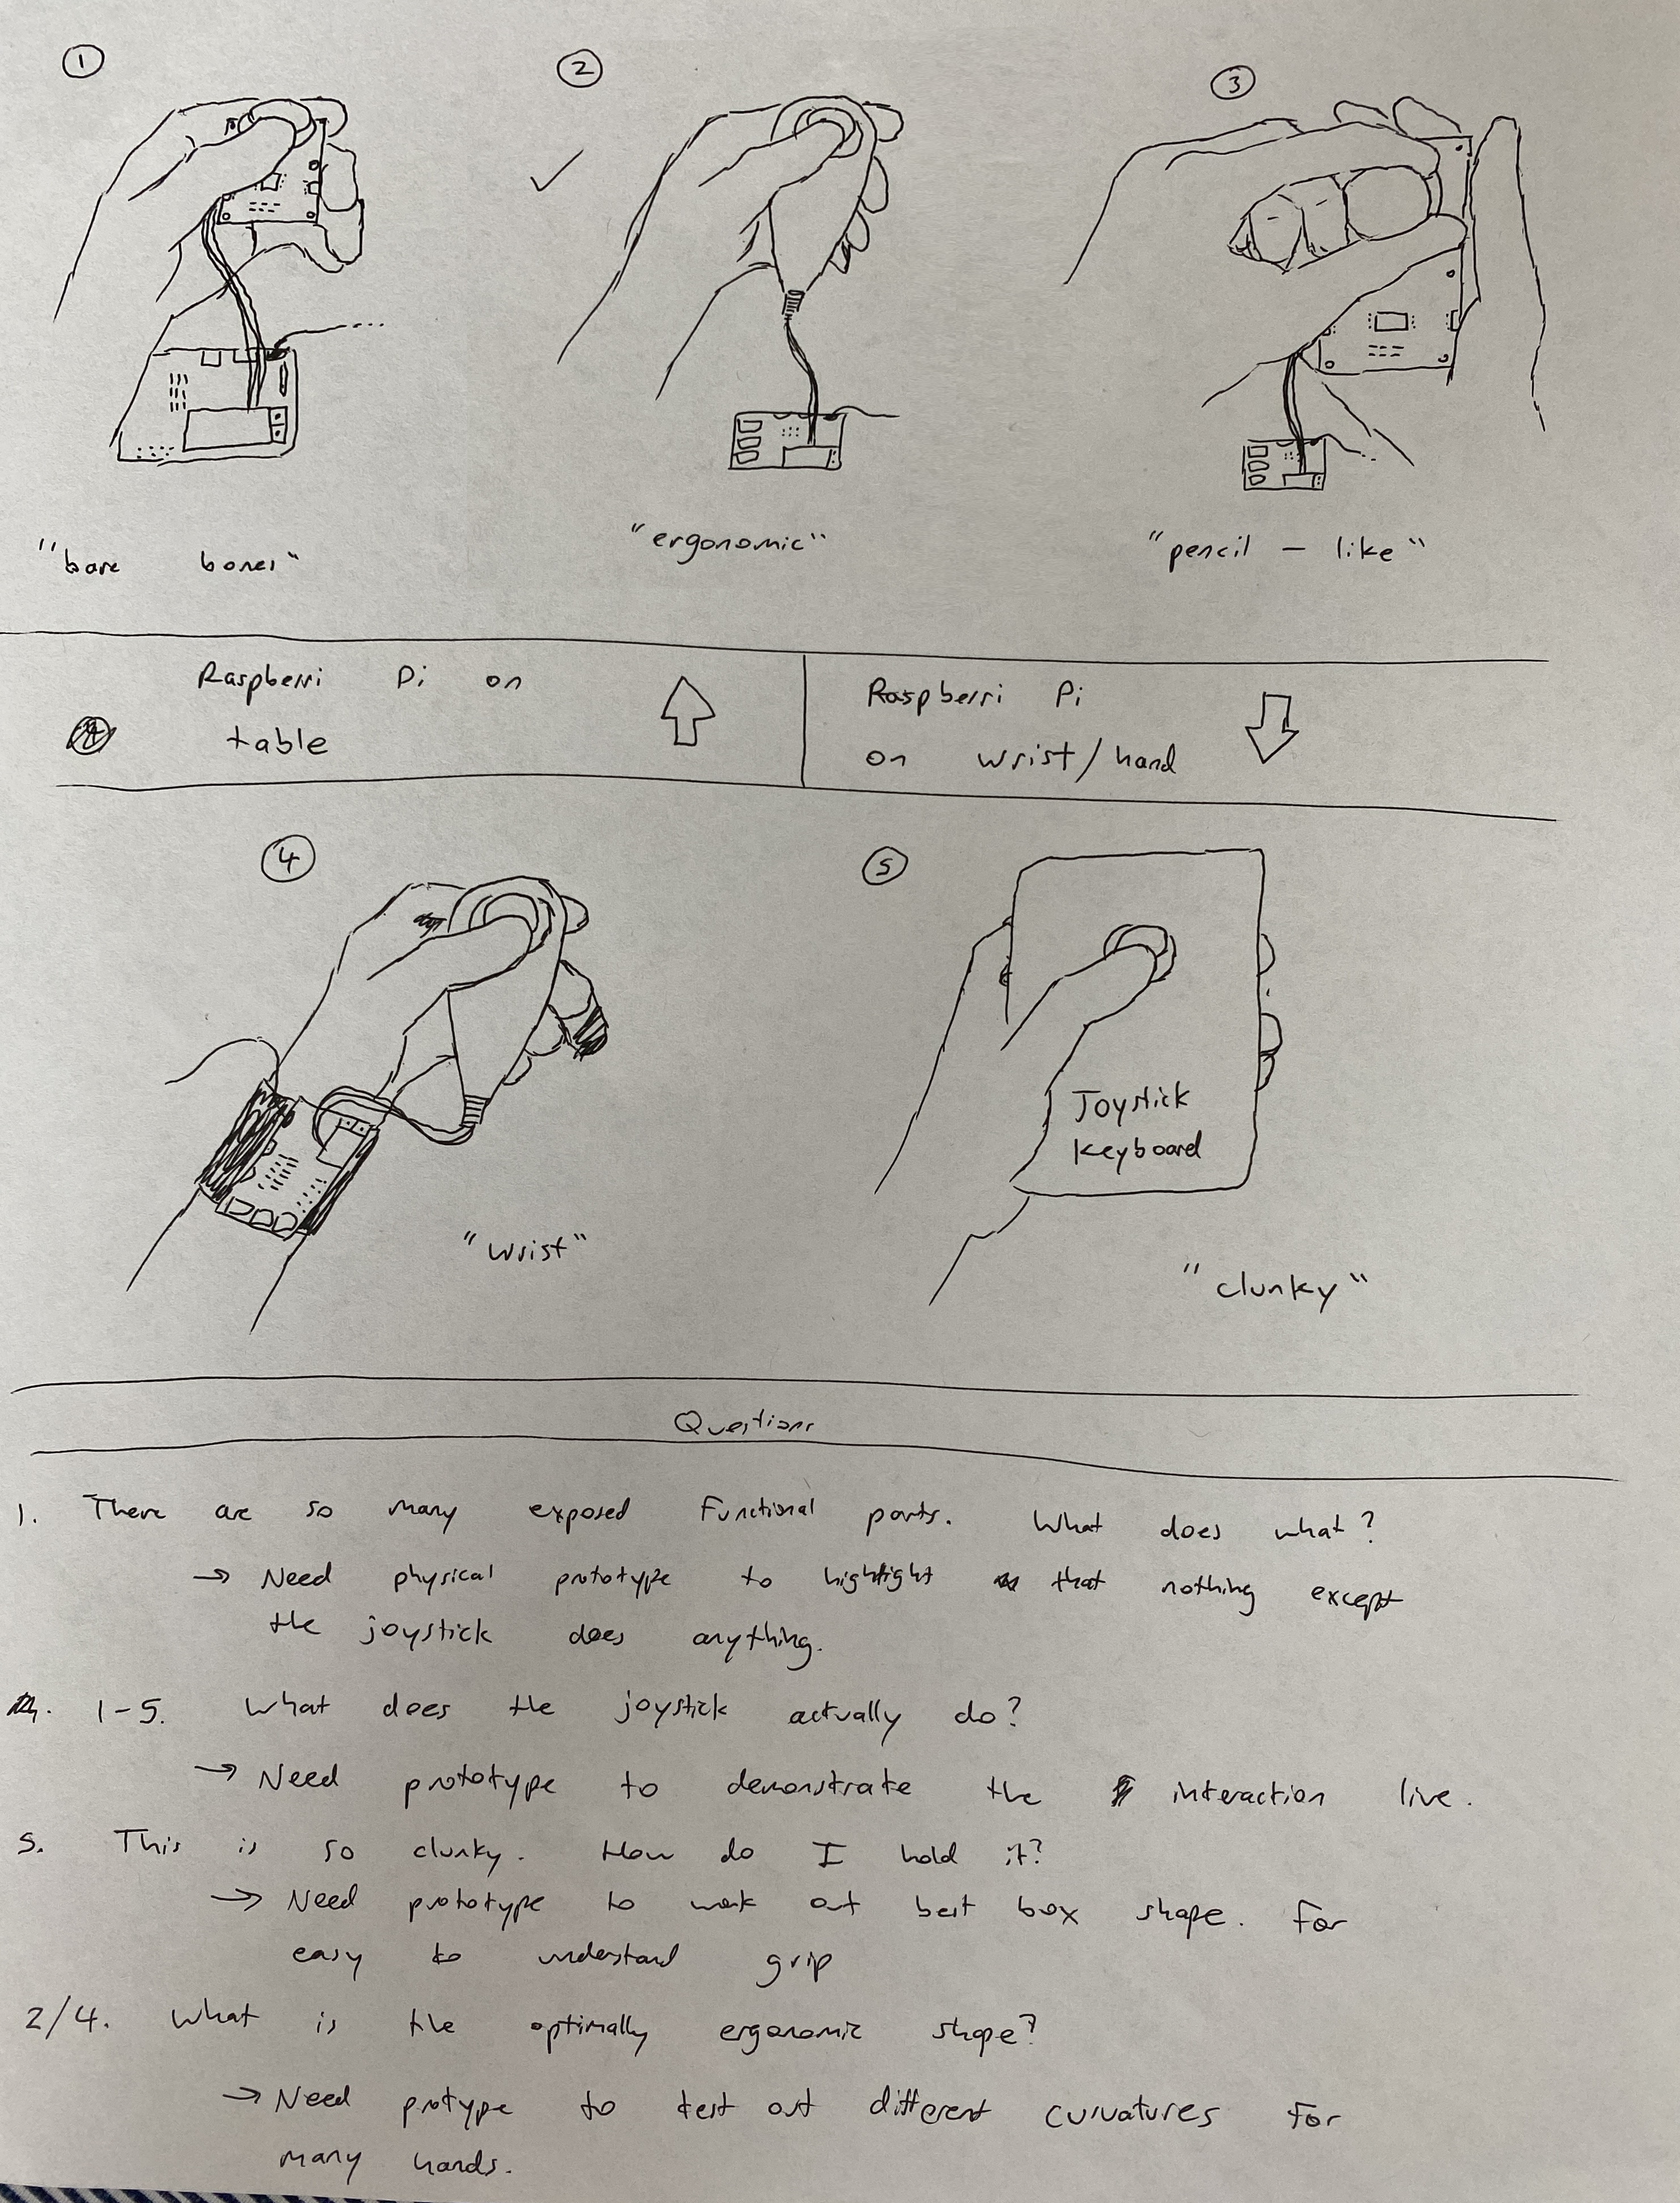 1
2
3
"bare bones"
"ergonomic"
"pencil - like"
Raspberri Pi on
table
Raspberri Pi
on wrist/hand
4
5
Joystick
Keyboard
"wrist"
"clunky"
Questions
1. There are so many exposed functional parts. What does what?
→ Need physical prototype to highlight that nothing except
the joystick does anything.
1-5. What does the joystick actually do?
→ Need prototype to demonstrate the interaction live.
5. This is so clunky. How do I hold it?
→ Need prototype to work out best box shape. For
easy to understand grip
2/4. What is the optimally ergonomic shape?
→ Need protype to test out different curvatures for
many hands.